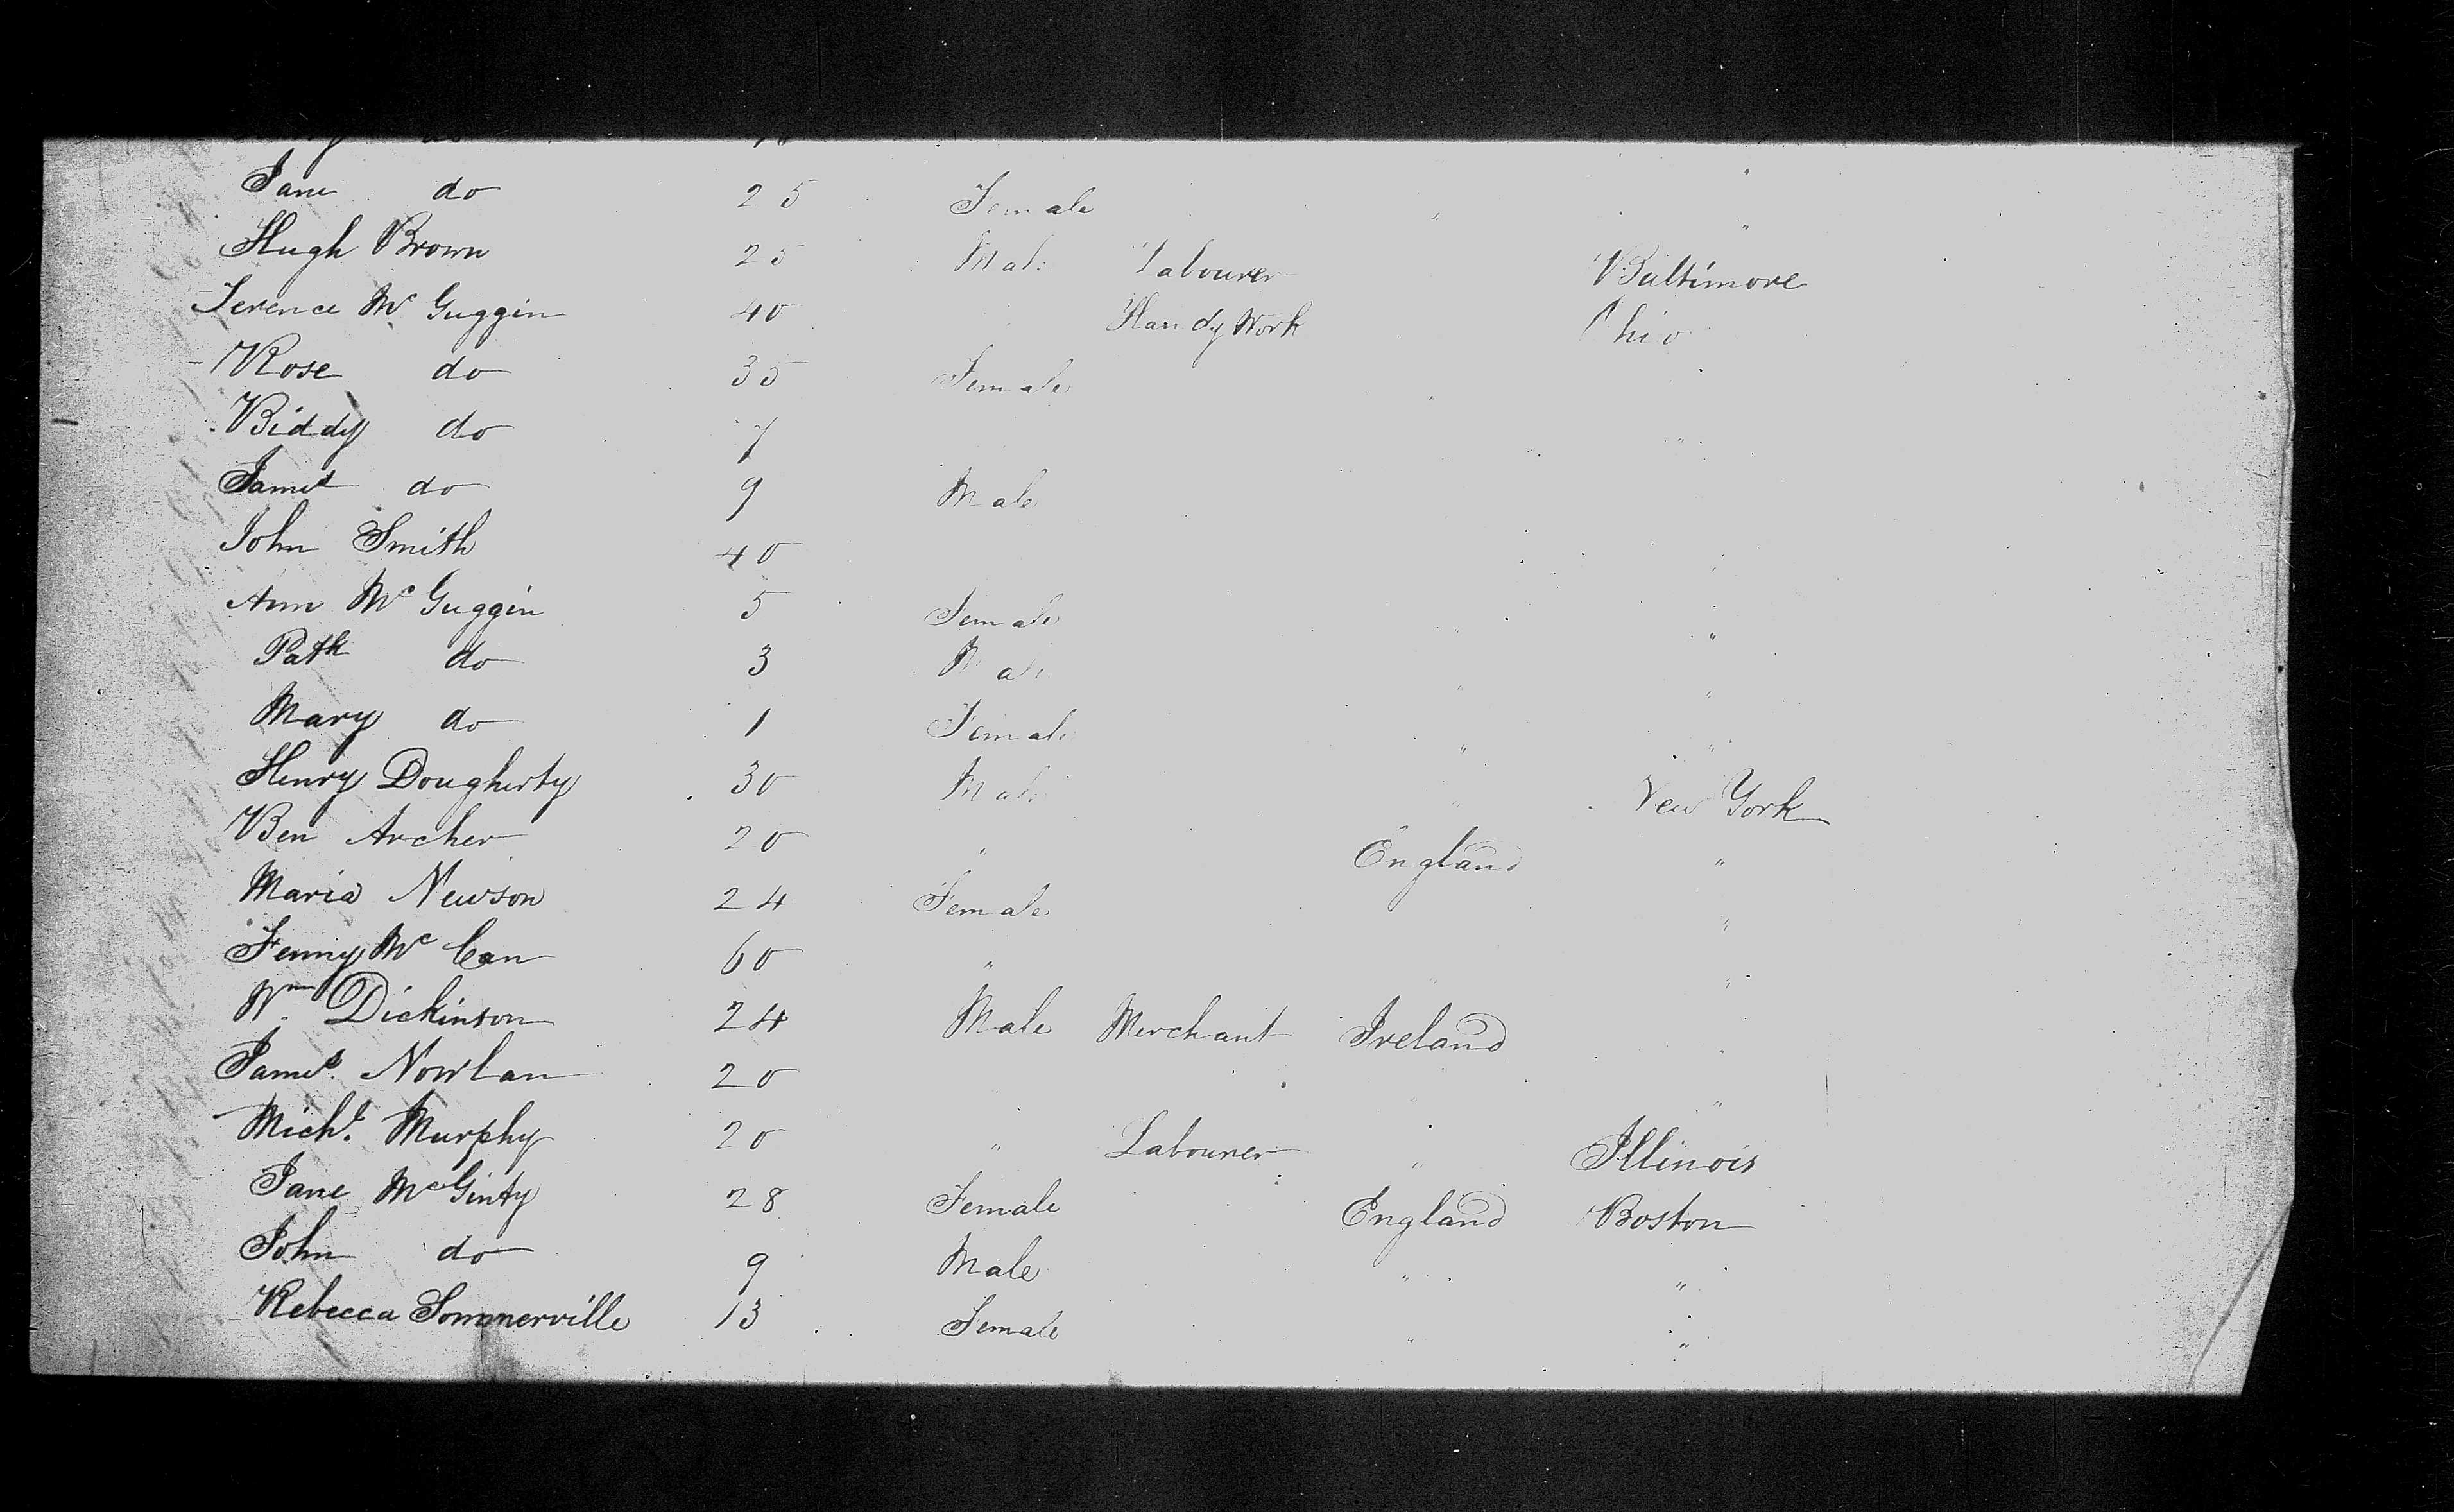 Jane do 25 Female " "
Hugh Brown 25 Male Labourer Baltimore
Terence Mc Guggin 40 Handy Work Ohio
Rose do 35 Female "
Biddy do 7 "
James do 9 Male
John Smith 40 "
Ann Mc Guggin 5 Female " "
Patk do 3 Male " "
Mary do 1 Female " "
Henry Dougherty 30 Male " New York
Ben Archer 20 " England "
Maria Newson 24 Female "
Jenny Mc Can 60 " " "
Wm Dickinson 24 Male Merchant Ireland "
James Nowlan 20 " "
Michl. Murphy 20 " Labourer " Illinois
Jane McGinty 28 Female England Boston
John do 9 Male " "
Rebecca Sommerville 13 Female " "